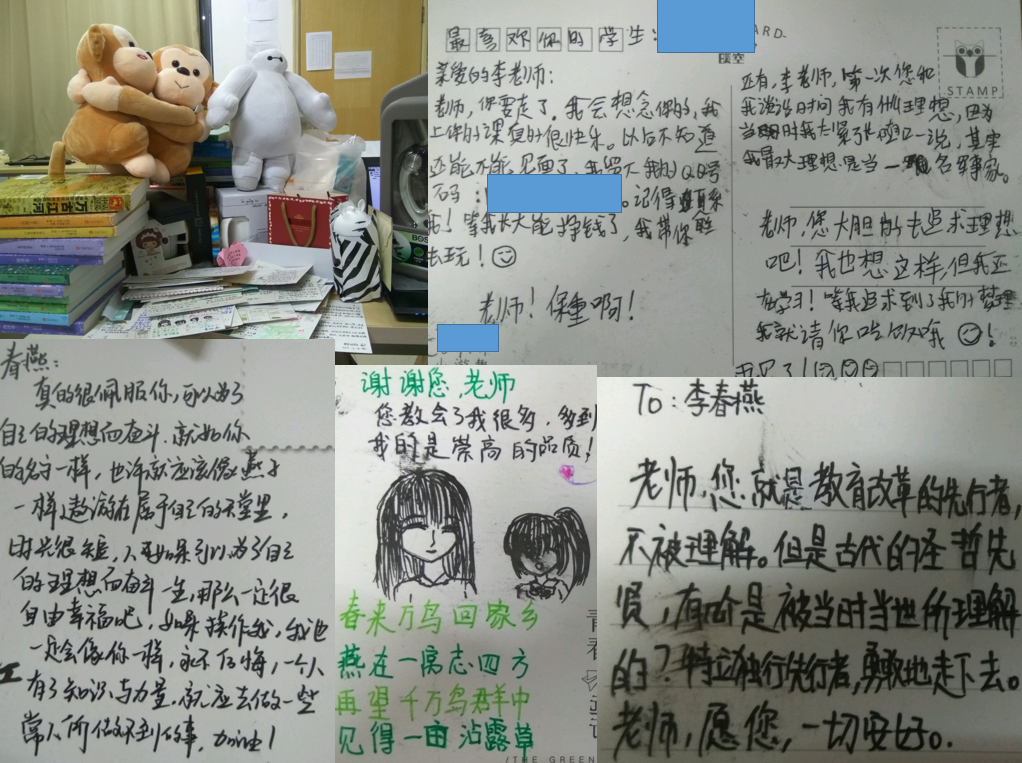 万古江河
最喜欢你的学生:
ARD
STAMP
亲爱的李老师:
老师,你要走了。我会想念你的,我
上你的课真的很快乐。以后不知道
还能不能见面了,我留下我的QQ号
码:
。记得联系
我!等我长大能挣钱了,我带你
去玩!
老师!保重啊!
还有,李老师,第一次您和
我谈话时问我有什么理想,因为
当时我太紧张随口一说,其实
我最大理想是当一名军事家。
老师,您大胆的去追求理想
吧!我也想这样,但我还
在学习!等我追求到了我的梦想
我就请你吃饭哦!
春燕:
真的很佩服你,可以为了
自己的理想而奋斗.就如你
的名字一样,也许就应该像燕子
一样遨游在属于自己的天堂里,
时光很短,人要如果可以为了自己
的理想而奋斗一生,那么一定很
自由幸福吧,如果换作我,我也
一定会像你一样,永不后悔,一个人
有了知识与力量,就应去做一些
常人所做不到的事,加油!
谢谢您,老师
您教会了我很多,多到
我的是崇高的品质!
春来万鸟回家乡
燕在一窝志四方
再望千万鸟群中
见得一由沾露草
/THE GREEN
To:李春燕
老师,您就是教育改革的先行者,
不被理解。但是古代的圣哲先
贤,有几个是被当时当世所理解
的?特立独行先行者,勇敢地走下去。
老师,愿您,一切安好。